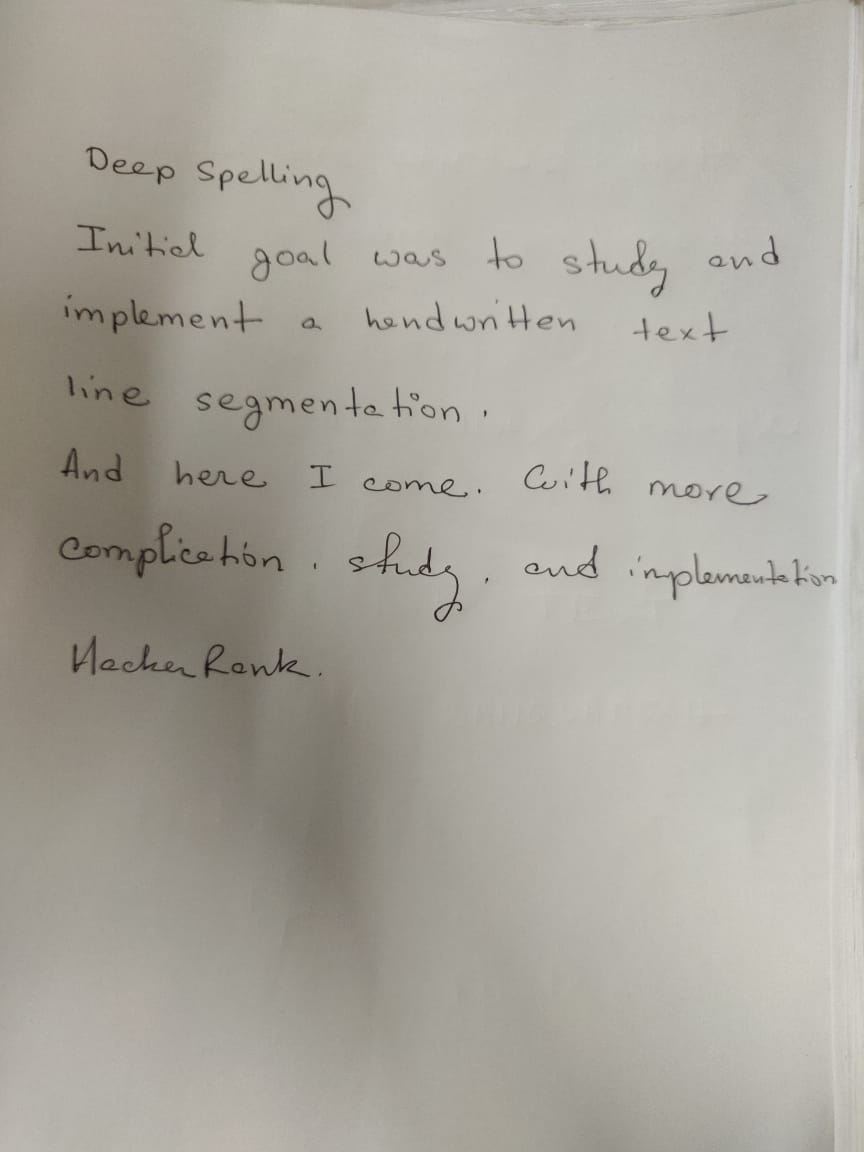 Deep Spelling
Initial goal was to study and
implement a handwritten text
line segmentation.
And here I come. With more
complication, study, and implementation
HackerRank.